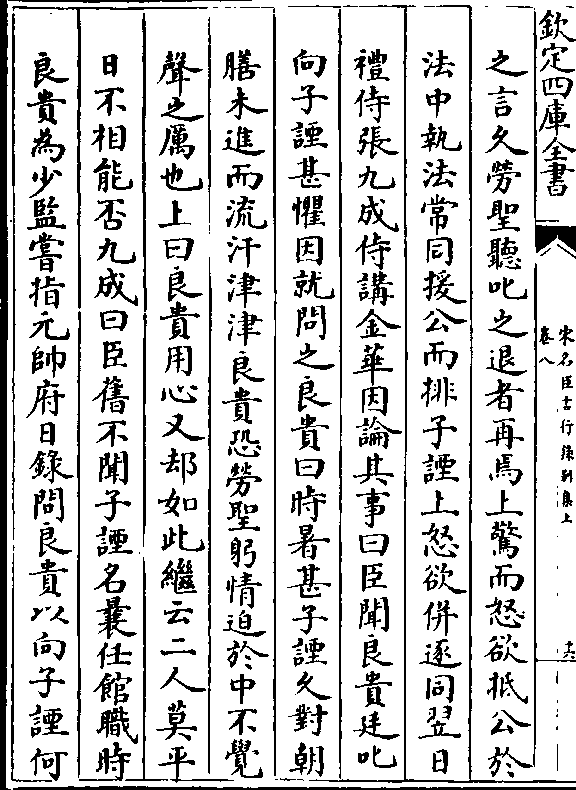 欽定四庫全書
宋名臣言行錄別集上
卷八
之言久勞聖聽叱之退者再焉上驚而怒欲抵公於
法中執法常同援公而排子諲上怒欲併逐同翌日
禮侍張九成侍講金華因論其事曰臣聞良貴廷叱
向子諲甚懼因就問之良貴曰時暑甚子諲久對朝
膳未進而流汗津津良貴恐勞聖躬情迫於中不覺
聲之厲也上曰良貴用心又却如此繼云二人莫平
日不相能否九成曰臣舊不聞子諲名曩任館職時
良貴為少監嘗指元帥府日錄問良貴以向子諲何